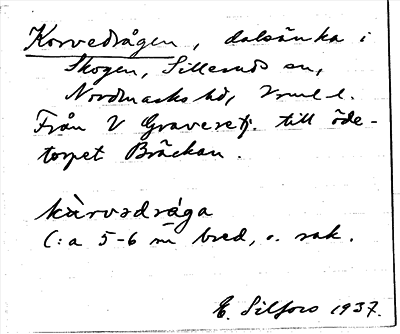 Korvedrågen, dalsänka i
Skogen, Silleruds sn,
Nordmarks hd, Vrml l.
Från V Gravsretj. till öde-
torpet Bräckan.
kàrvədrága
C:a 5-6 m bred, o. rak.
E. Silfors 1937.